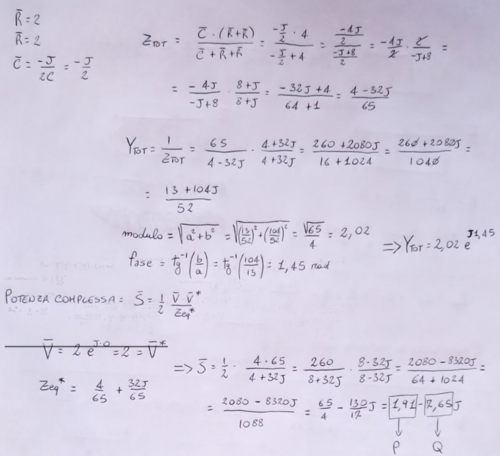 R̄ = 2
R̄ = 2
C̄ = -J/2C = -J/2
Z_TOT = C̄ · (R̄+R̄) / C̄ + R̄ + R̄ = -J/2 · 4 / -J/2 + 4 = -4J/2 / -J+8/2 = -4J/2 · 2/-J+8 =
= -4J/-J+8 · 8+J/8+J = -32J+4/64+1 = 4-32J/65
Y_TOT = 1/Z_TOT = 65/4-32J · 4+32J/4+32J = 260+2080J/16+1024 = 260+2080J/1040 =
= 13+104J/52
modulo = √a²+b² = √(13/52)²+(104/52)² = √65/4 = 2,02
fase = tg⁻¹(b/a) = tg⁻¹(104/13) = 1,45 rad
⇒ Y_TOT = 2,02 e^J1,45
POTENZA COMPLESSA = S̄ = 1/2 V̄·V̄*/Zeq*
V̄ = 2 e^J·0 = 2 = V̄*
Zeq* = 4/65 + 32J/65
⇒ S̄ = 1/2 · 4·65/4+32J = 260/8+32J · 8-32J/8-32J = 2080-8320J/64+1024 =
= 2080-8320J/1088 = 65/4 - 130/17 J = 1,91 - 7,65J
P Q